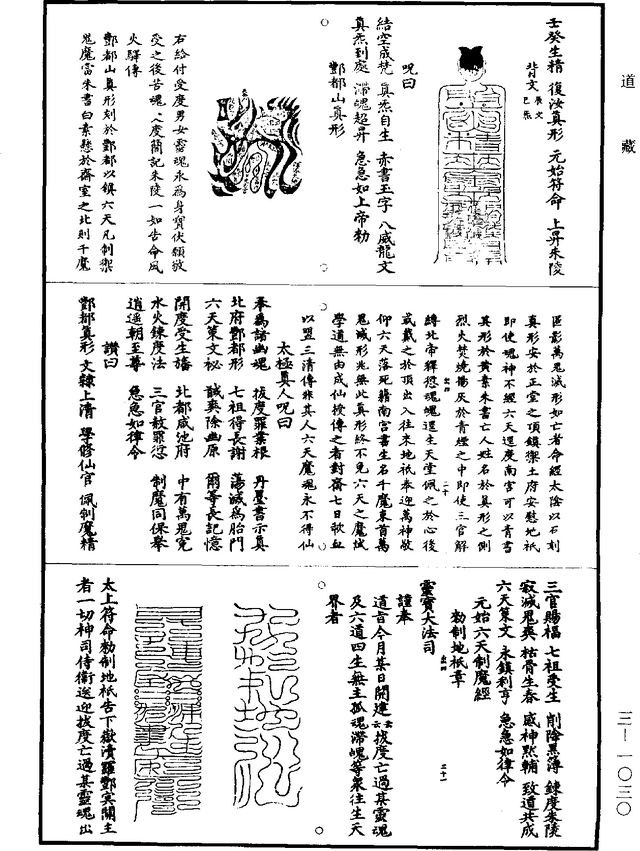 道藏
壬癸生精　復汝真形　元始符命　上昇朱陵
背文
辰文
已炁
呪曰
結空成梵　真炁自生　赤書玉字　八威龍文
真炁到處　滯魂超昇　急急如上帝勅
酆都山真形
右給付受度男女靈魂永為身寶伏願敬
受之後苦魂
度簡記朱陵一如告命風
火驛傳
酆都山真形刻於酆都以鎮六天凡制禦
鬼魔當朱書白素懸於齋室之北則千魔
匿影萬鬼滅形如亡者命經太陰以石刻
真形安於正室之頂鎮禦土府安慰地祇
即使魂神不經六天還度南宮可以青書
真形於黃素朱書亡人姓名於真形之側
烈火焚燒揚灰於青煙之中即使三官解
縛北帝釋愆魂魄還生天堂佩之於心後
或戴之於頂出入往來地祇奉迎萬神敬
仰六天落死籍南宮書生名千魔束首萬
鬼滅形光無此真形終不免六天之魔試
學道無由成仙授傳之者對齋七日歃血
以盟三清傳非其人六天魔魂永不得仙
太極真人呪曰
奉為諸幽魂　拔度罪業根　丹墨書示真
北府酆都形　七祖得長謝　蕩滅為胎門
六天策文祕　誠爽除幽原　爾等長記憶
開度受生籍　北都咸池府　中有萬鬼寃
水火鍊度法　三官赦罪愆　制魔同保舉
逍遙朝至尊　急急如律令
讚曰
酆都真形　文隸上清　學修仙官　佩制魔精
三官賜福　七祖受生　削除黑簿　鍊度朱陵
寂滅鬼爽　枯骨生春　威神默輔　致道共成
六天策文　永鎮利亨　急急如律令
元始六天制魔經
勅制地祇章
靈寶大法司
謹奉
道旨今月某日開建云云拔度亡過某靈魂
及六道四生無主孤魂滯魄等衆往生天
界者
太上符命勅制地祇告下嶽瀆羅酆冥關主
者一切神司侍衛送迎拔度亡過某靈魂出
三一一〇三〇